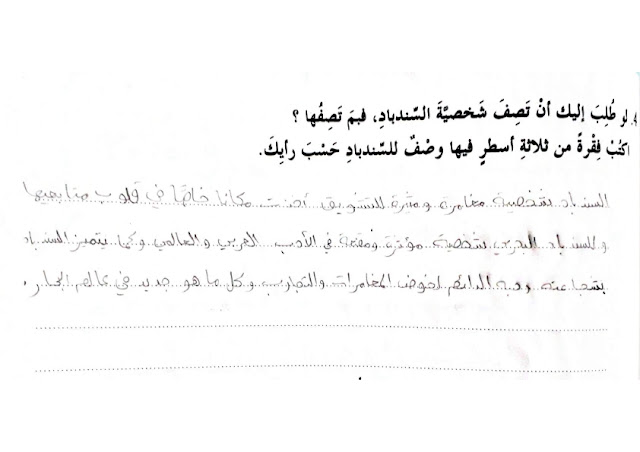 4. لو طُلِبَ إليك أنْ تَصِفَ شَخصيَّةَ السِّندبادِ، فبمَ تَصِفُها ؟
اكتُبْ فِقْرةً من ثلاثةِ أسطرٍ فيها وصْفٌ للسِّندبادِ حَسْبَ رأيِكَ.
السندباد شخصية مغامرة ومثيرة للتشويق أخذت مكانا خاصًا في قلوب متابعيها
وللسندباد البحري شخصية مؤثرة ومقنعة في الأدب العربي والعالمي وكما يتميز السندباد
بشجاعته وحبه الدائم لخوض المغامرات والتجارب وكل ما هو جديد في عالم البحار.